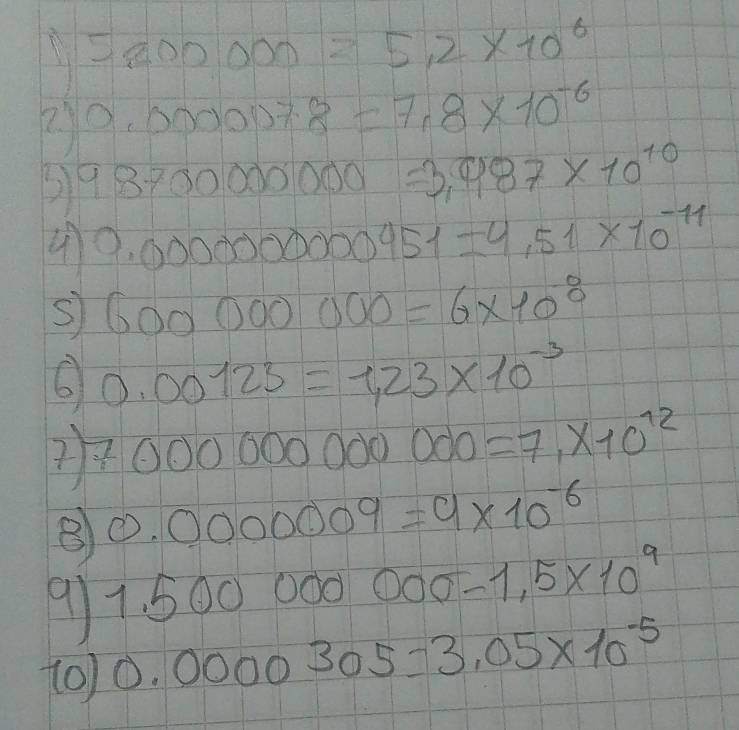 1) 5200 000 = 5,2 x 10⁶
2) 0.0000078 = 7,8 x 10⁻⁶
3) 98700000000 = 9,87 x 10¹⁰
4) 0.0000000000451 = 4,51 x 10⁻¹¹
5) 600 000 000 = 6 x 10⁸
6) 0.00123 = 1,23 x 10⁻³
7) 7 000 000 000 000 = 7, x 10¹²
8) 0.0000009 = 9 x 10⁻⁶
9) 1.500 000 000 = 1,5 x 10⁹
10) 0.0000 305 = 3,05 x 10⁻⁵